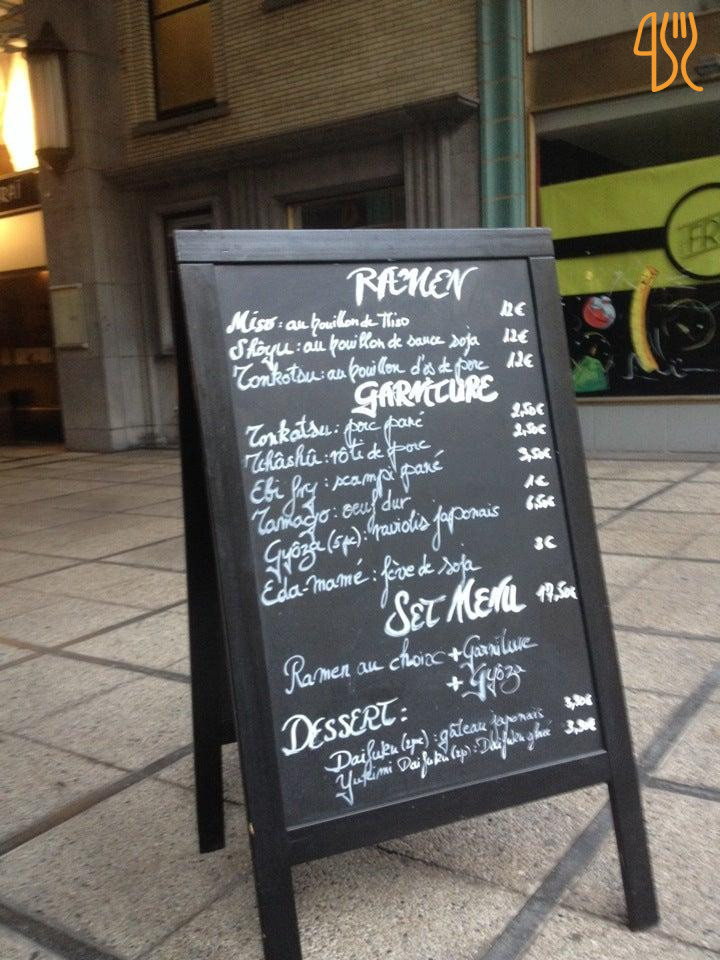 RAMEN
Miso: au bouillon de Miso 12€
Shôyu: au bouillon de sauce soja 12€
Tonkotsu: au bouillon d'os de porc 12€
GARNITURE
Tonkatsu: porc pané 2,50€
Tchâshû: rôti de porc 2,50€
Ebi fry: scampi pané 3,50€
Tamago: oeuf dur 1€
Gyôza (5pc): raviolis japonais 6,50€
Eda-mamé: fève de soja 3€
SET MENU 17,50€
Ramen au choix + Garniture
+ Gyôza
DESSERT:
Daifuku (2pc): gâteau japonais 3,90€
Yukimi Daifuku (2p): Daifuku glacé 3,90€